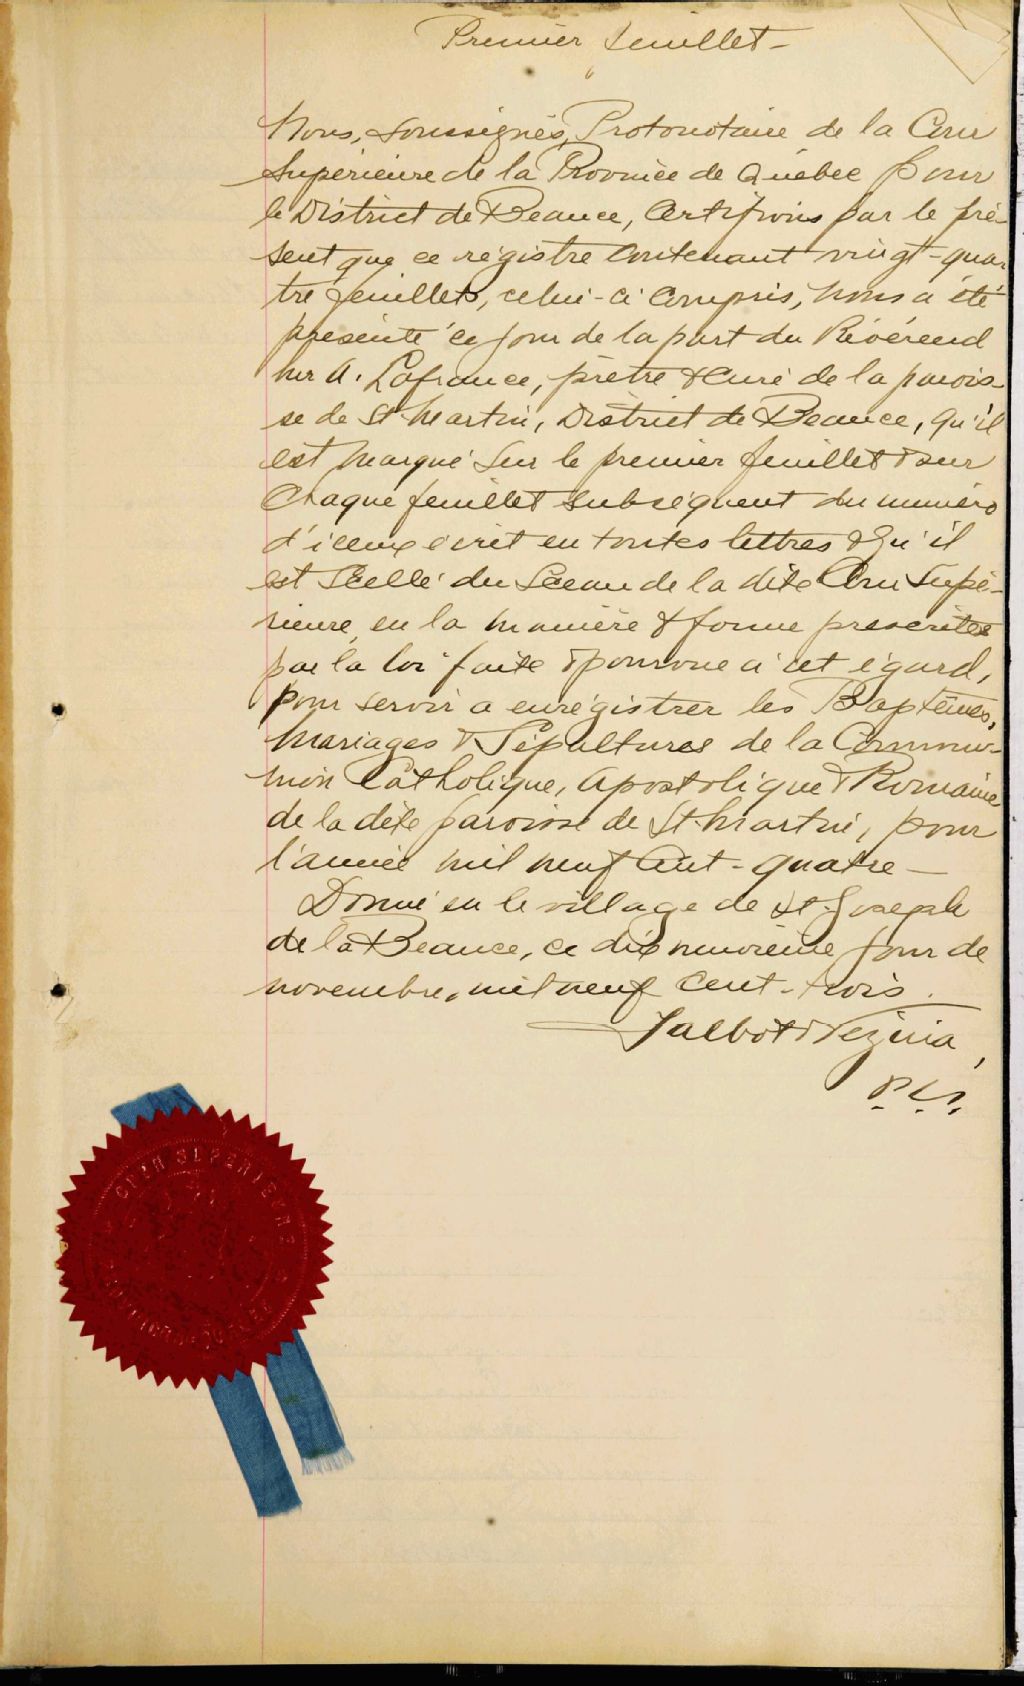 Premier feuillet -
Nous, soussignés, Protonotaire de la Cour
Supérieure de la Province de Québec pour
le District de Beauce, certifions par le pré-
sent que ce régistre contenant vingt-qua-
tre feuillets, celui-ci compris, nous a été
présenté ce jour de la part du Révérend
Mr A. Lafrance, prêtre & curé de la parois-
se de St-Martin, District de Beauce, qu'il
est marqué sur le premier feuillet & sur
chaque feuillet subséquent du numéro
d'iceux écrit en toutes lettres & qu'il
est scellé du sceau de la dite Cour Supé-
rieure, en la manière & forme prescrites
par la loi faite & pourvue à cet égard,
pour servir a enrégistrer les Baptêmes,
Mariages & Sépultures de la Commu-
nion Catholique, Apostolique & Romaine
de la dite paroisse de St-Martin, pour
l'année mil neuf cent-quatre -
Donné en le village de St-Joseph
de la Beauce, ce dix neuvième jour de
novembre, mil neuf cent-trois.
Talbot & Vézina,
P.C.S.
COUR SUPERIEURE